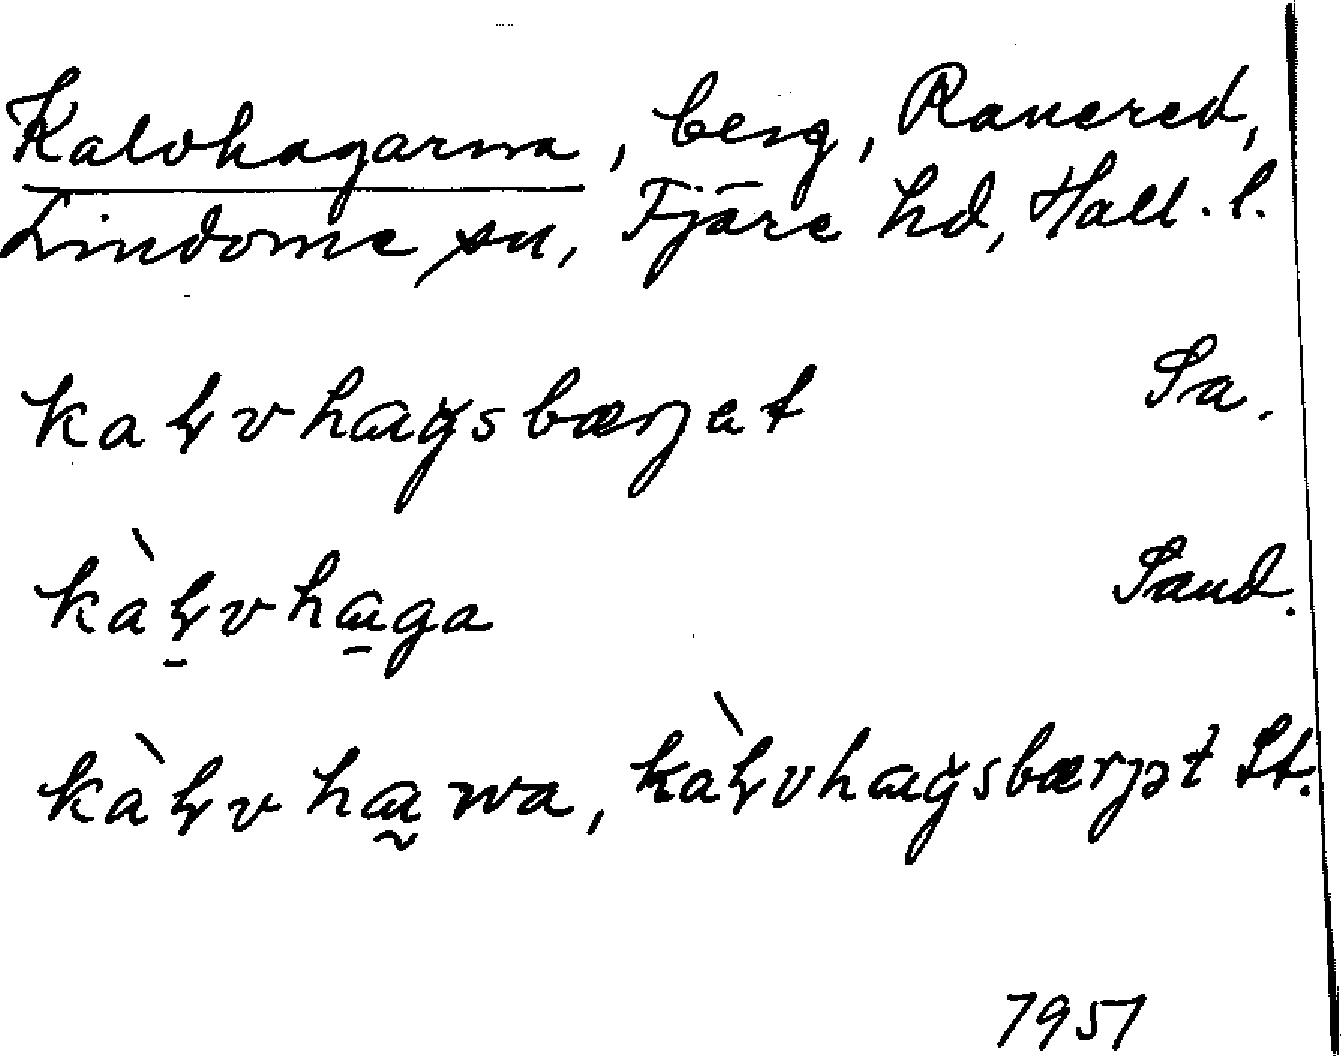 Kalvhagarna, berg, Ranered,
Lindome sn, Fjäre hd, Hall. l.
kaɽvhaɡ̌sbærjet Sa.
kàɽ̠vha̠ga Sand.
kàɽvha̰wa, kàɽvhaɡ̌sbærjət St.
1951